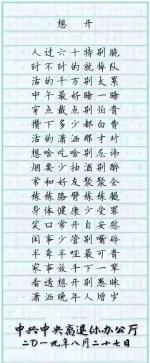 想开
人过六十特别脆
时不时的就掉队
活的千万别太累
中午最好睡一睡
穿点戴点别怕贵
攒下多少都白费
活的潇洒那才对
想啥吃啥别忌讳
烟要少抽酒别醉
常和好友聚聚会
练练胳膊练练腿
身体健康少受罪
笑口常开自安慰
闲事少管别嘴碎
半聋半哑最可贵
家事放手下一辈
看透想开别愚昧
潇洒晚年人增岁
中共中央离退休办公厅
二〇一九年八月二十七日